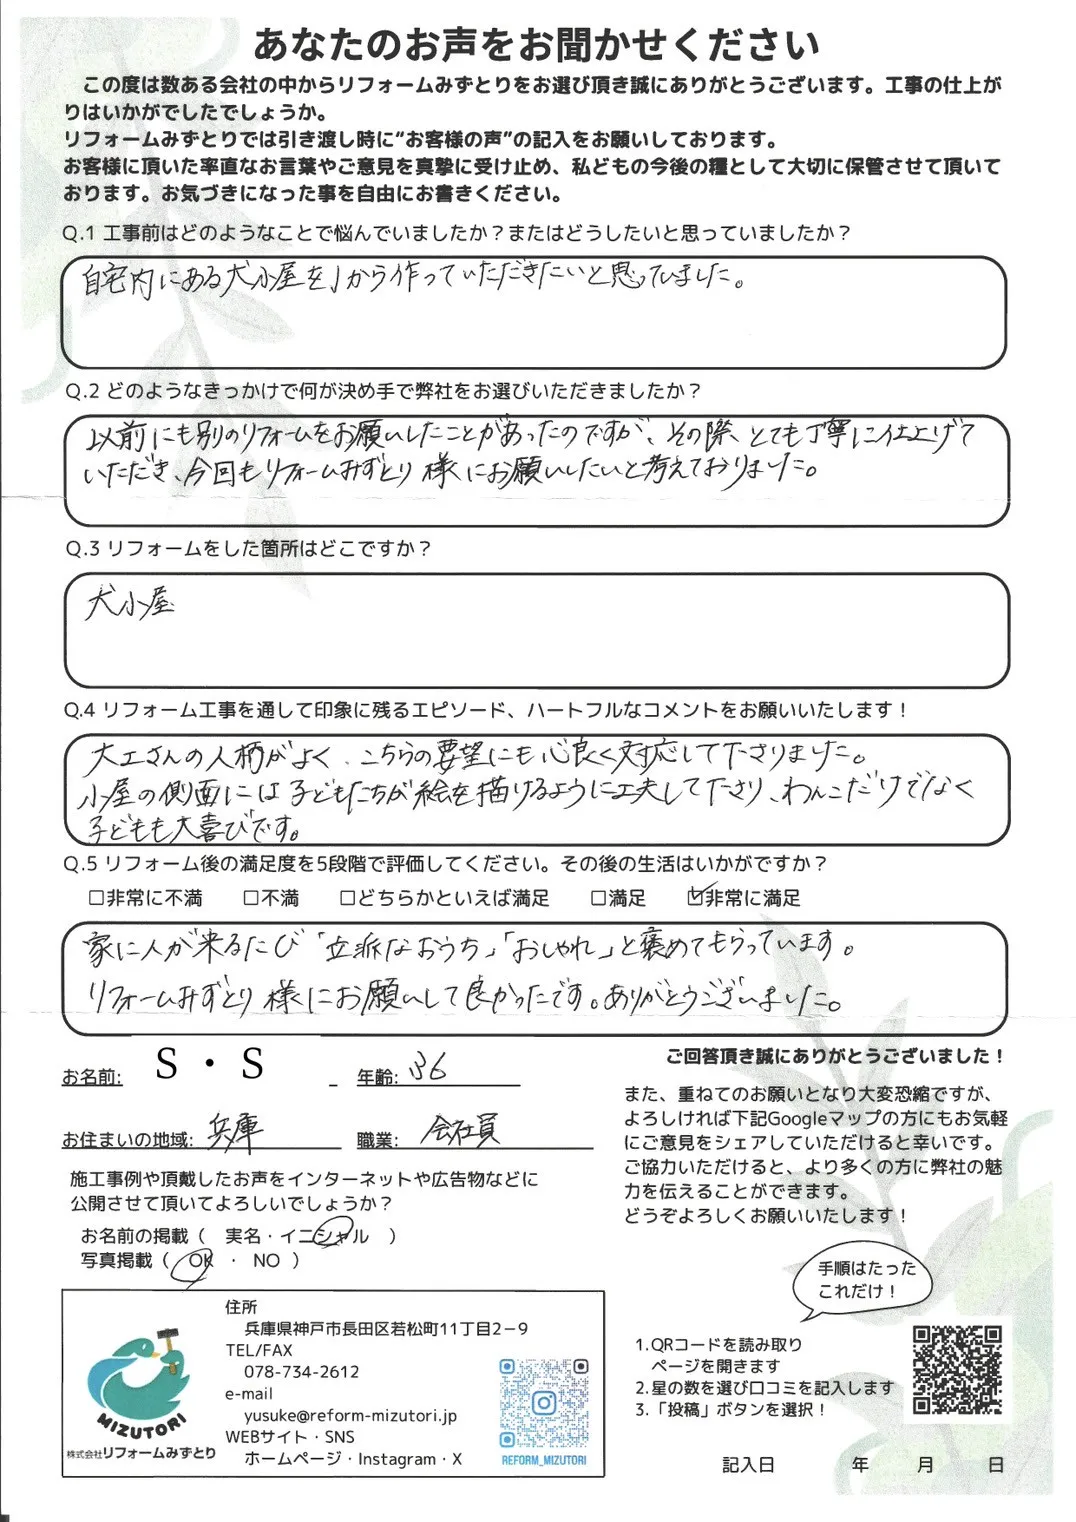 あなたのお声をお聞かせください
この度は数ある会社の中からリフォームみずとりをお選び頂き誠にありがとうございます。工事の仕上が
りはいかがでしたでしょうか。
リフォームみずとりでは引き渡し時に“お客様の声”の記入をお願いしております。
お客様に頂いた率直なお言葉やご意見を真摯に受け止め、私どもの今後の糧として大切に保管させて頂いて
おります。お気づきになった事を自由にお書きください。
Q.1 工事前はどのようなことで悩んでいましたか？またはどうしたいと思っていましたか？
自宅内にある犬小屋を1から作っていただきたいと思っていました。
Q.2 どのようなきっかけで何が決め手で弊社をお選びいただきましたか？
以前にも別のリフォームをお願いしたことがあったのですが、その際、とても丁寧に仕上げて
いただき、今回もリフォームみずとり様にお願いしたいと考えておりました。
Q.3 リフォームをした箇所はどこですか？
犬小屋
Q.4 リフォーム工事を通して印象に残るエピソード、ハートフルなコメントをお願いいたします！
大工さんの人柄がよく、こちらの要望にも心良く対応して下さりました。
小屋の側面には子どもたちが絵を描けるように工夫して下さり、わんこだけでなく
子どもも大喜びです。
Q.5 リフォーム後の満足度を5段階で評価してください。その後の生活はいかがですか？
□非常に不満 □不満 □どちらかといえば満足 □満足 ☑非常に満足
家に人が来るたび「立派なおうち」「おしゃれ」と褒めてもらっています。
リフォームみずとり様にお願いして良かったです。ありがとうございました。
お名前: S・S 年齢: 36
お住まいの地域: 兵庫 職業: 会社員
施工事例や頂戴したお声をインターネットや広告物などに
公開させて頂いてよろしいでしょうか？
お名前の掲載（ 実名・イニシャル ）
写真掲載（ OK ・ NO ）
ご回答頂き誠にありがとうございました！
また、重ねてのお願いとなり大変恐縮ですが、
よろしければ下記Googleマップの方にもお気軽
にご意見をシェアしていただけると幸いです。
ご協力いただけると、より多くの方に弊社の魅
力を伝えることができます。
どうぞよろしくお願いいたします！
手順はたった
これだけ！
1.QRコードを読み取り
ページを開きます
2.星の数を選び口コミを記入します
3.「投稿」ボタンを選択！
記入日 年 月 日
MIZUTORI
株式会社リフォームみずとり
住所
兵庫県神戸市長田区若松町11丁目2－9
TEL/FAX
078-734-2612
e-mail
yusuke@reform-mizutori.jp
WEBサイト・SNS
ホームページ・Instagram・X
REFORM_MIZUTORI